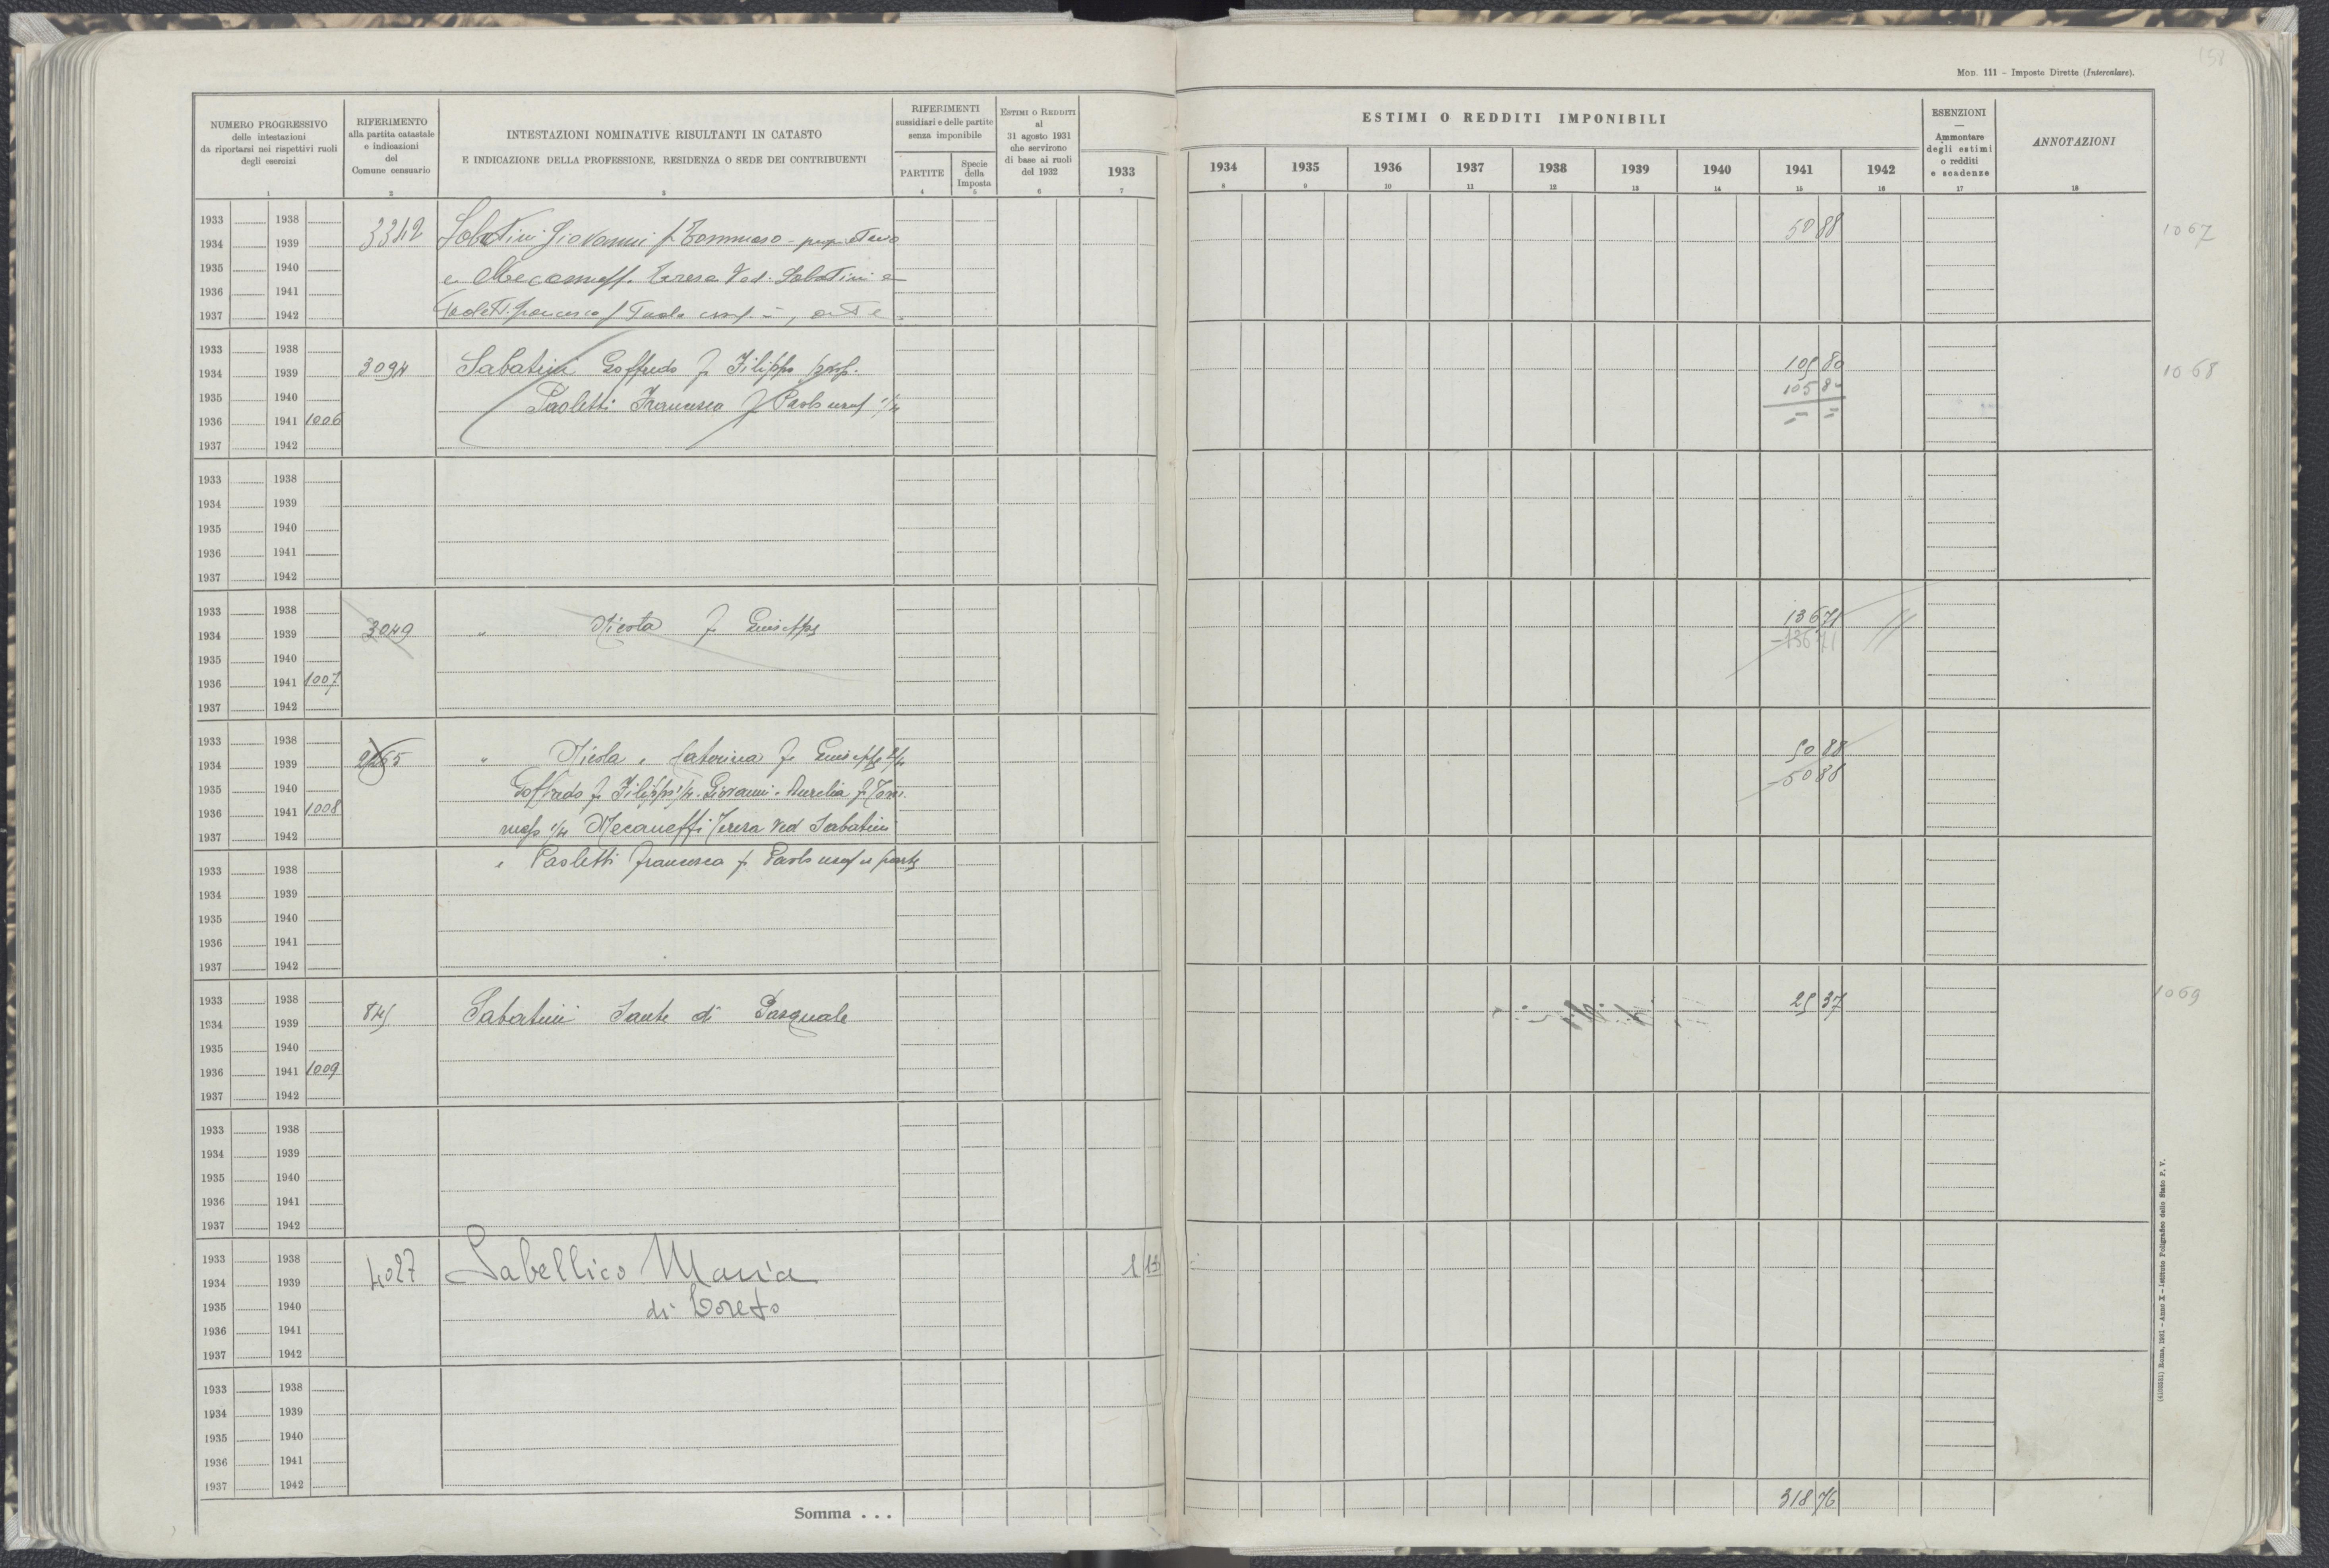 158
MOD. 111 - Imposte Dirette (Intercalare).
NUMERO PROGRESSIVO delle intestazioni da riportarsi nei rispettivi ruoli degli esercizi
RIFERIMENTO alla partita catastale e indicazioni del Comune censuario
INTESTAZIONI NOMINATIVE RISULTANTI IN CATASTO
E INDICAZIONE DELLA PROFESSIONE, RESIDENZA O SEDE DEI CONTRIBUENTI
RIFERIMENTI sussidiari e delle partite senza imponibile
PARTITE
Specie della Imposta
ESTIMI O REDDITI al 31 agosto 1931 che servirono di base ai ruoli del 1932
ESTIMI O REDDITI IMPONIBILI
1933 1934 1935 1936 1937 1938 1939 1940 1941 1942
ESENZIONI
—
Ammontare degli estimi o redditi e scadenze
ANNOTAZIONI
1 2 3 4 5 6 7 8 9 10 11 12 13 14 15 16 17 18
1933 1938
1934 1939 3342 Sabatini Giovanni f Tommaso - proprietario 50 88 1067
1935 1940 e Mecaneff. Teresa Ved. Sabatini e
1936 1941
1937 1942 Paolett. Francesca f Paolo usuf.
1933 1938
1934 1939 3094 Sabatini Goffredo f Filippo prop. 105 80 1068
1935 1940 Paoletti Francesca f Paolo usuf 1/4 105 80
1936 1941 1006 = =
1937 1942
1933 1938
1934 1939
1935 1940
1936 1941
1937 1942
1933 1938 136 71
1934 1939 3049 " Nicola f Giuseppe - 136 71
1935 1940
1936 1941 1007
1937 1942
1933 1938 50 88
1934 1939 2265 " Nicola e Caterina f Giuseppe 2/4 - 50 88
1935 1940 Goffredo f Filippo 1/4 Giovanni e Aurelia f Tom.
1936 1941 1008
1937 1942 maso 1/4 Mecaneffi Teresa Ved Sabatini
1933 1938 e Paoletti Francesca f Paolo usuf in parte
1934 1939
1935 1940
1936 1941
1937 1942
1933 1938 25 37 1069
1934 1939 845 Sabatini Sante di Pasquale
1935 1940
1936 1941 1009
1937 1942
1933 1938
1934 1939
1935 1940
1936 1941
1937 1942
1933 1938
1934 1939 4027 Sabellico Maria 1 13
1935 1940 di Loreto
1936 1941
1937 1942
1933 1938
1934 1939
1935 1940
1936 1941
1937 1942
Somma . . . 318 76
(4100551) Roma, 1931 - Anno X - Istituto Poligrafico dello Stato P. V.